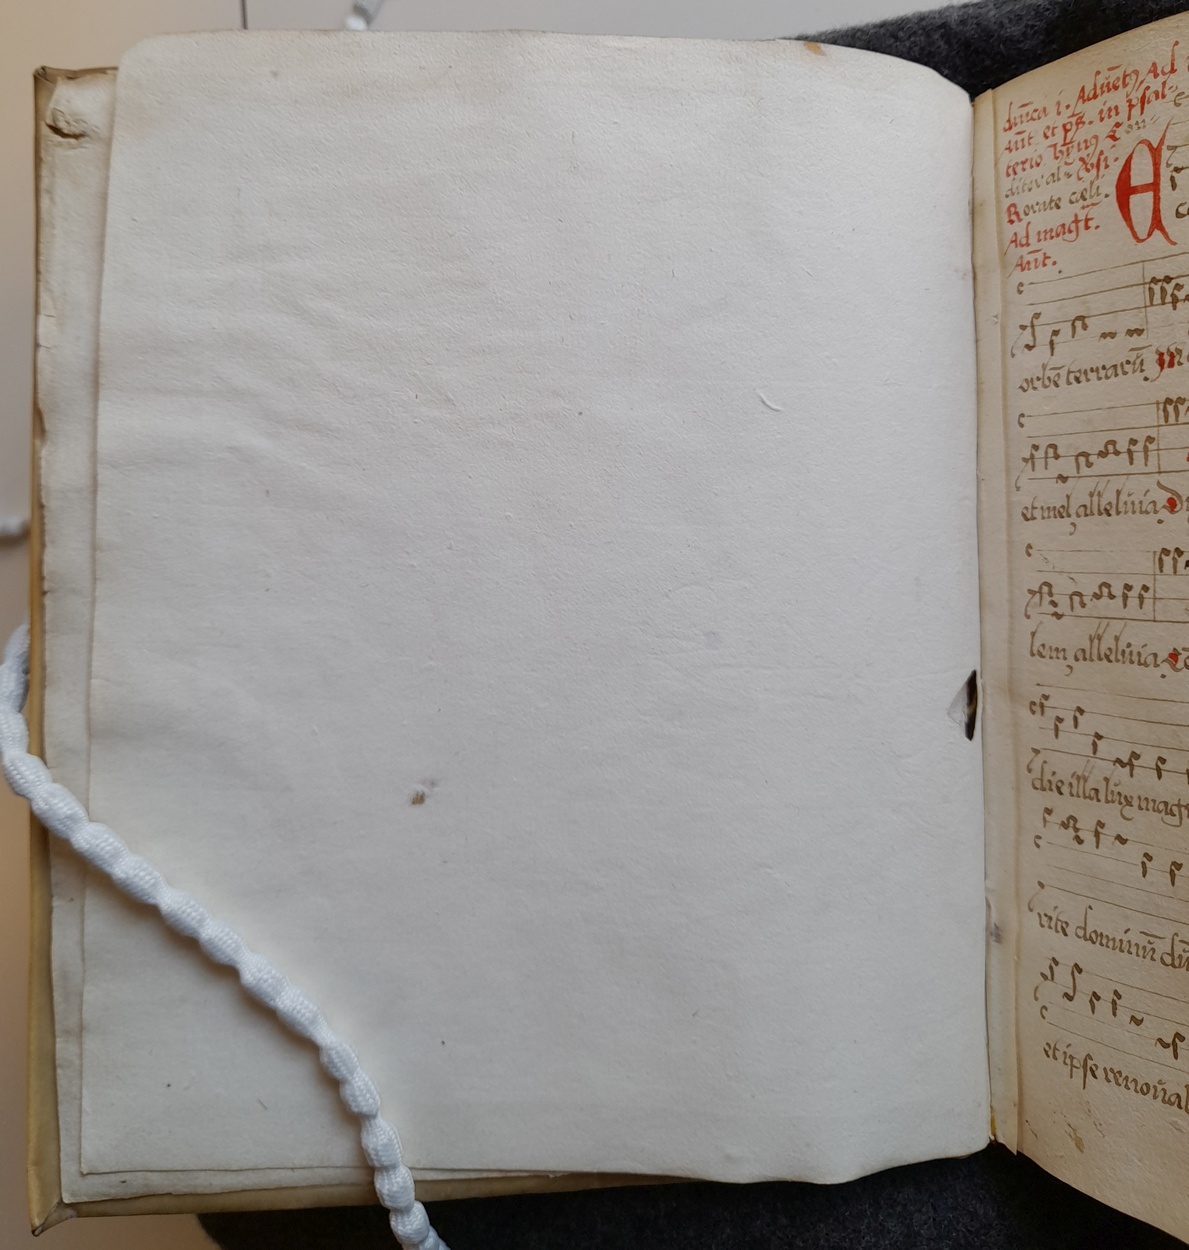 dn̄ica i. Adūetꝯ Ad
Añt et ps̄. in psal-
terio. hȳnꝯ Con-
ditor al-
Rorate cæli.
Ad magt̄.
Añt.
E
orbē terrarū. M
et mel alleluia. D
lem, alleluia.
die illa lux mag
vite dominū dū
et ipse renouab